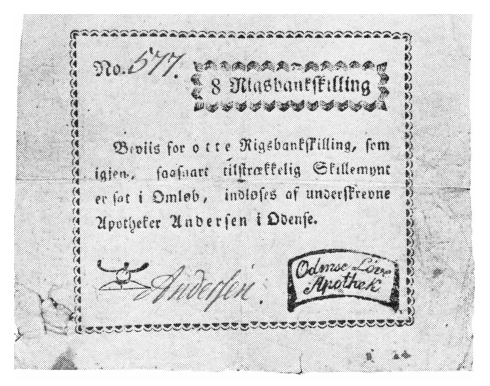 No. 577.
8 Rigsbankskilling
Beviis for otte Rigsbankskilling, som
igjen, saasnart tilstrækkelig Skillemynt
er sat i Omløb, indløses af underskrevne
Apotheker Andersen i Odense.
Andersen.
Odense Løve
Apothek